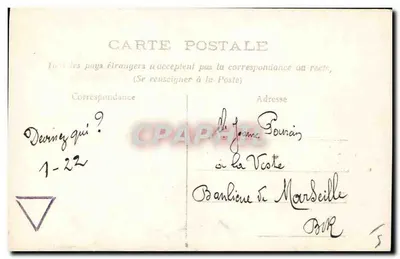 CARTE POSTALE
Tous les pays étrangers n'acceptent pas la correspondance au recto,
(Se renseigner à la Poste)
Correspondance
Adresse
Devinez qui ?
1-22
à la Valte
Banlieue de Marseille
BdR
5
CPARAMA